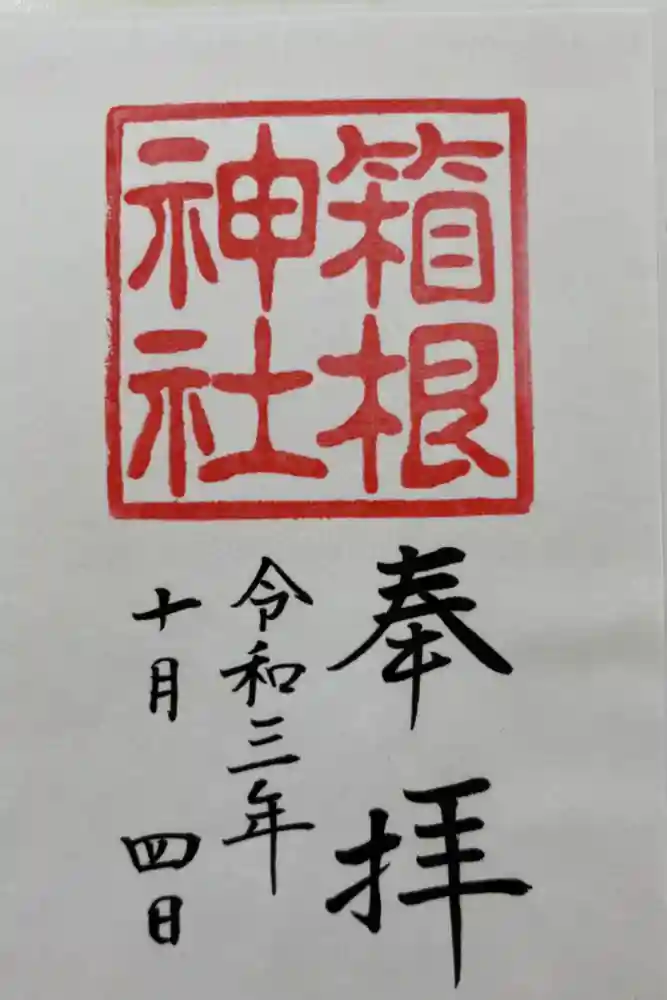 箱根
神社
奉拝
令和三年
十月四日